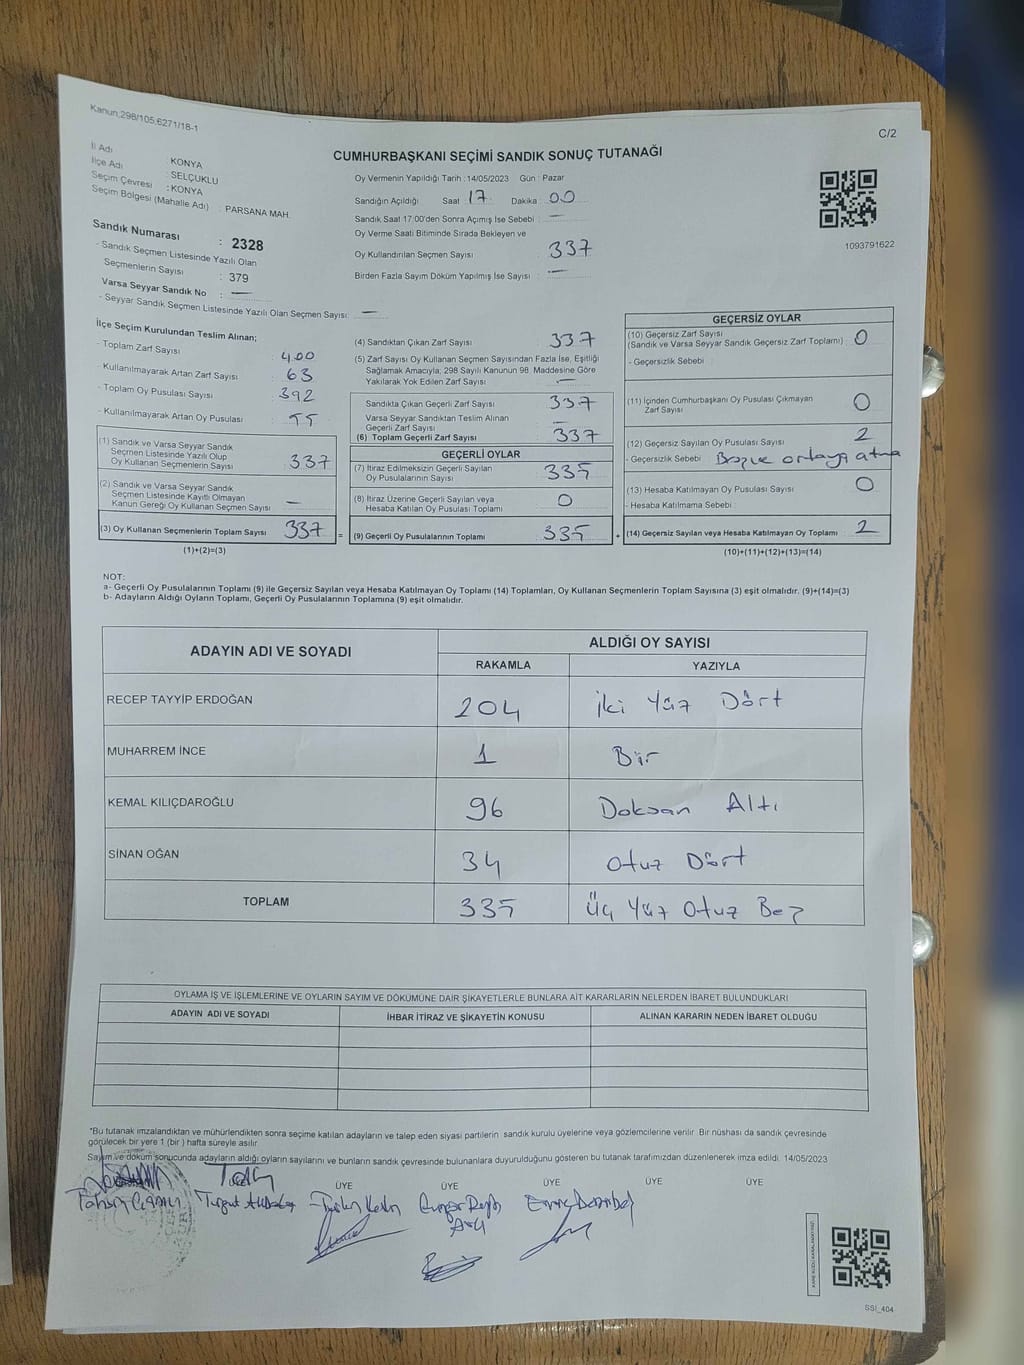 Kanun;298/105;6271/18-1
C/2
CUMHURBAŞKANI SEÇİMİ SANDIK SONUÇ TUTANAĞI
İl Adı : KONYA
İlçe Adı : SELÇUKLU
Seçim Çevresi : KONYA
Seçim Bölgesi (Mahalle Adı) : PARSANA MAH.
Sandık Numarası : 2328
- Sandık Seçmen Listesinde Yazılı Olan
Seçmenlerin Sayısı : 379
Varsa Seyyar Sandık No : —
- Seyyar Sandık Seçmen Listesinde Yazılı Olan Seçmen Sayısı: —
Oy Vermenin Yapıldığı Tarih : 14/05/2023 Gün : Pazar
Sandığın Açıldığı Saat 17 Dakika : 00
Sandık Saat 17:00'den Sonra Açımış İse Sebebi : —
Oy Verme Saati Bitiminde Sırada Bekleyen ve
Oy Kullandırılan Seçmen Sayısı : 337
Birden Fazla Sayım Döküm Yapılmış İse Sayısı : —
1093791622
İlçe Seçim Kurulundan Teslim Alınan;
- Toplam Zarf Sayısı : 400
- Kullanılmayarak Artan Zarf Sayısı : 63
- Toplam Oy Pusulası Sayısı : 392
- Kullanılmayarak Artan Oy Pusulası : 55
(1) Sandık ve Varsa Seyyar Sandık
Seçmen Listesinde Yazılı Olup
Oy Kullanan Seçmenlerin Sayısı : 337
(2) Sandık ve Varsa Seyyar Sandık
Seçmen Listesinde Kayıtlı Olmayan
Kanun Gereği Oy Kullanan Seçmen Sayısı : —
(3) Oy Kullanan Seçmenlerin Toplam Sayısı 337
(1)+(2)=(3)
(4) Sandıktan Çıkan Zarf Sayısı : 337
(5) Zarf Sayısı Oy Kullanan Seçmen Sayısından Fazla İse, Eşitliği
Sağlamak Amacıyla; 298 Sayılı Kanunun 98. Maddesine Göre
Yakılarak Yok Edilen Zarf Sayısı : —
Sandıkta Çıkan Geçerli Zarf Sayısı : 337
Varsa Seyyar Sandıktan Teslim Alınan
Geçerli Zarf Sayısı : —
(6) Toplam Geçerli Zarf Sayısı : 337
GEÇERLİ OYLAR
(7) İtiraz Edilmeksizin Geçerli Sayılan
Oy Pusulalarının Sayısı : 335
(8) İtiraz Üzerine Geçerli Sayılan veya
Hesaba Katılan Oy Pusulası Toplamı : 0
= (9) Geçerli Oy Pusulalarının Toplamı 335 +
GEÇERSİZ OYLAR
(10) Geçersiz Zarf Sayısı
(Sandık ve Varsa Seyyar Sandık Geçersiz Zarf Toplamı) : 0
- Geçersizlik Sebebi :
(11) İçinden Cumhurbaşkanı Oy Pusulası Çıkmayan
Zarf Sayısı : 0
(12) Geçersiz Sayılan Oy Pusulası Sayısı : 2
- Geçersizlik Sebebi : ortaya atma
(13) Hesaba Katılmayan Oy Pusulası Sayısı : 0
- Hesaba Katılmama Sebebi :
(14) Geçersiz Sayılan veya Hesaba Katılmayan Oy Toplamı 2
(10)+(11)+(12)+(13)=(14)
NOT:
a- Geçerli Oy Pusulalarının Toplamı (9) ile Geçersiz Sayılan veya Hesaba Katılmayan Oy Toplamı (14) Toplamları, Oy Kullanan Seçmenlerin Toplam Sayısına (3) eşit olmalıdır. (9)+(14)=(3)
b- Adayların Aldığı Oyların Toplamı, Geçerli Oy Pusulalarının Toplamına (9) eşit olmalıdır.
ADAYIN ADI VE SOYADI
ALDIĞI OY SAYISI
RAKAMLA YAZIYLA
RECEP TAYYİP ERDOĞAN 204 İki Yüz Dört
MUHARREM İNCE 1 Bir
KEMAL KILIÇDAROĞLU 96 Doksan Altı
SİNAN OĞAN 34 Otuz Dört
TOPLAM 335 Üç Yüz Otuz Beş
OYLAMA İŞ VE İŞLEMLERİNE VE OYLARIN SAYIM VE DÖKÜMÜNE DAİR ŞİKAYETLERLE BUNLARA AİT KARARLARIN NELERDEN İBARET BULUNDUKLARI
ADAYIN ADI VE SOYADI İHBAR İTİRAZ VE ŞİKAYETİN KONUSU ALINAN KARARIN NEDEN İBARET OLDUĞU
*Bu tutanak imzalandıktan ve mühürlendikten sonra seçime katılan adayların ve talep eden siyasi partilerin sandık kurulu üyelerine veya gözlemcilerine verilir. Bir nüshası da sandık çevresinde
görülecek bir yere 1 (bir ) hafta süreyle asılır.
Sayım ve döküm sonucunda adayların aldığı oyların sayılarını ve bunların sandık çevresinde bulunanlara duyurulduğunu gösteren bu tutanak tarafımızdan düzenlenerek imza edildi. 14/05/2023
ÜYE ÜYE ÜYE ÜYE ÜYE
SSİ_404